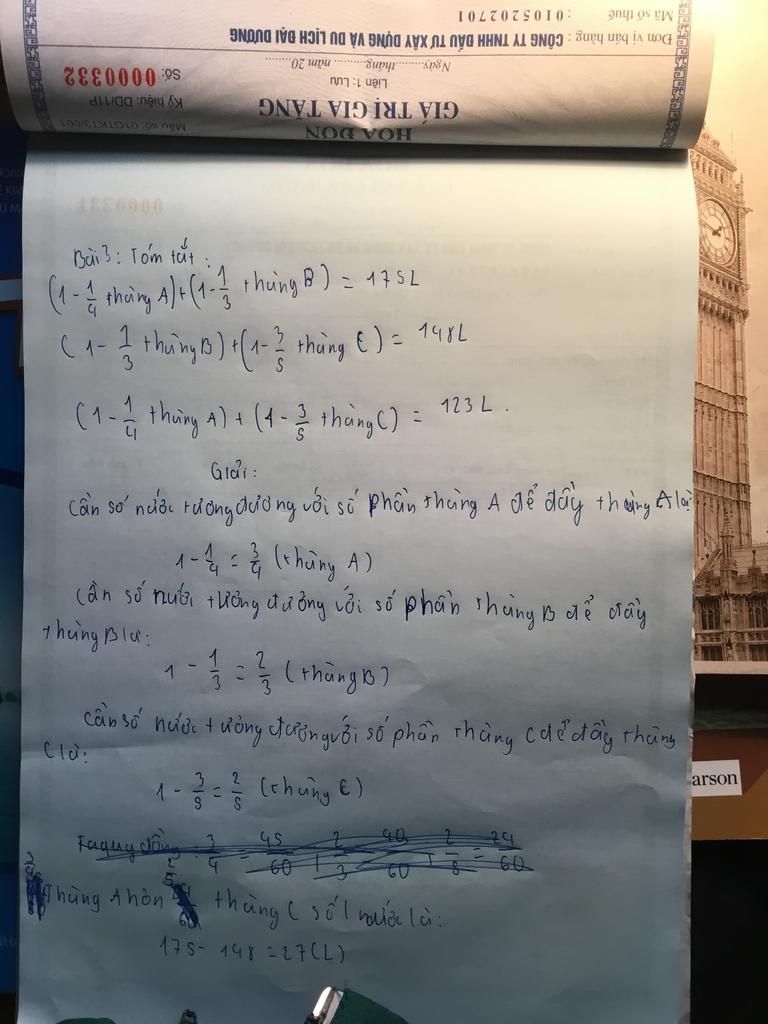 Mẫu số: 01GTKT3/001
HÓA ĐƠN
Ký hiệu: DD/11P
GIÁ TRỊ GIA TĂNG
Liên 1: Lưu
Số: 0000332
Ngày........tháng........ năm 20........
Đơn vị bán hàng : CÔNG TY TNHH ĐẦU TƯ XÂY DỰNG VÀ DU LỊCH ĐẠI DƯƠNG
Mã số thuế : 0105202701
Bài 3: Tóm tắt :
(1 - 1/4 thùng A) + (1 - 1/3 thùng B) = 175L
(1 - 1/3 thùng B) + (1 - 3/5 thùng C) = 148L
(1 - 1/4 thùng A) + (1 - 3/5 thùng C) = 123L.
Giải:
Cần số nước tương đương với số phần thùng A để đầy thùng A là
1 - 1/4 = 3/4 (thùng A)
Cần số nước tương đương với số phần thùng B để đầy
thùng B là:
1 - 1/3 = 2/3 (thùng B)
Cần số nước tương đương với số phần thùng C để đầy thùng
C là:
1 - 3/5 = 2/5 (thùng C)
3/4 Thùng A hơn 2/5 thùng C số l nước là:
175 - 148 = 27(L)
arson